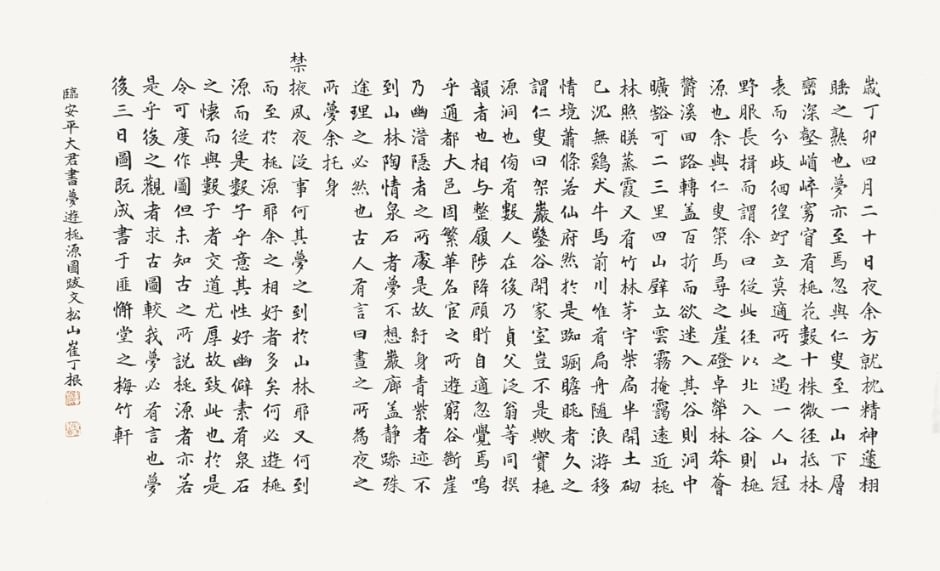 歲丁卯四月二十日夜余方就枕精神蘧栩
睡之熟也夢亦至焉忽與仁叟至一山下層
巒深壑崷崒窈窅有桃花數十株微徑抵林
表而分歧徊徨竚立莫適所之遇一人山冠
野服長揖而謂余曰從此徑以北入谷則桃
源也余與仁叟策馬尋之崖磴卓犖林莽薈
欝溪回路轉盖百折而欲迷入其谷則洞中
曠豁可二三里四山壁立雲霧掩靄遠近桃
林照暎蒸霞又有竹林茅宇柴扃半開土砌
已沉無鷄犬牛馬前川惟有扁舟随浪游移
情境蕭條若仙府然於是踟躕瞻眺者久之
謂仁叟曰架巖鑿谷開家室豈不是歟實桃
源洞也傍有數人在後乃貞父泛翁等同撰
韻者也相与整履陟降顧眄自適忽覺焉嗚
乎通都大邑固繁華名宦之所遊窮谷斷崖
乃幽潛隱者之所處是故紆身青紫者迹不
到山林陶情泉石者夢不想巖廊盖静躁殊
途理之必然也古人有言曰晝之所為夜之
所夢余托身
禁掖夙夜從事何其夢之到於山林耶又何到
而至於桃源耶余之相好者多矣何必遊桃
源而從是數子乎意其性好幽僻素有泉石
之懷而與數子者交道尤厚故致此也於是
令可度作圖但未知古之所說桃源者亦若
是乎後之觀者求古圖較我夢必有言也夢
後三日圖既成書于匪懈堂之梅竹軒
臨安平大君書夢遊桃源圖跋文松山崔丁根